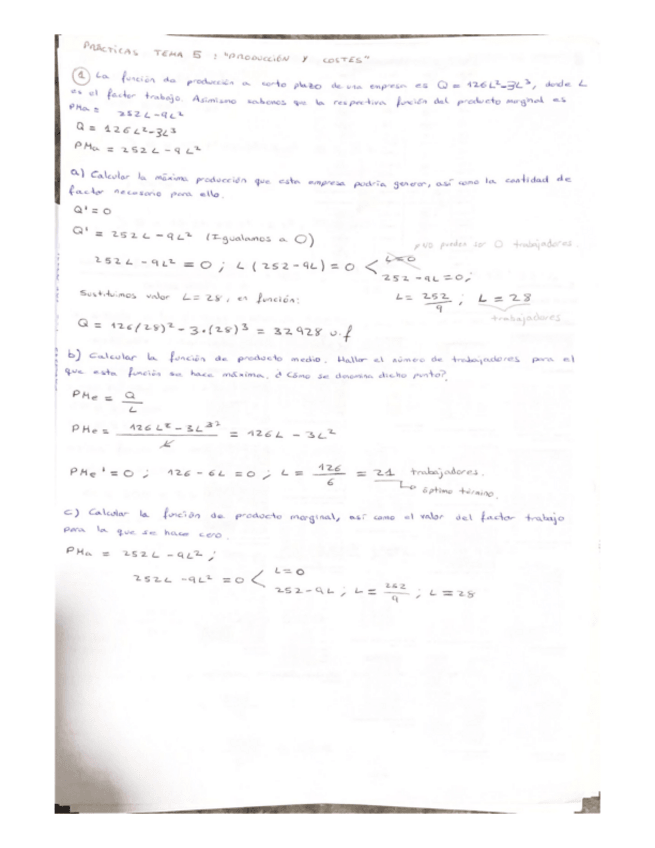 PRÁCTICAS TEMA 5: "PRODUCCIÓN Y COSTES"
① La función de producción a corto plazo de una empresa es Q = 126L²-3L³, donde L
es el factor trabajo. Asimismo sabemos que la respectiva función del producto marginal es
PMa = 252L-9L²
Q = 126L²-3L³
PMa = 252L-9L²
a) Calcular la máxima producción que esta empresa podría generar, así como la cantidad de
factor necesario para ello.
Q' = 0
Q' = 252L-9L² (Igualamos a 0)
pno pueden ser 0 trabajadores
252L-9L² = 0 ; L(252-9L) = 0 < L=0
252-9L=0;
Sustituimos valor L=28, en función:
L = 252/9 ; L = 28
trabajadores
Q = 126(28)² - 3·(28)³ = 32928 u.f
b) Calcular la función de producto medio. Hallar el número de trabajadores para el
que esta función se hace máxima. ¿Cómo se denomina dicho punto?
PMe = Q/L
PMe = 126L² - 3L³²/L = 126L - 3L²
PMe' = 0 ; 126 - 6L = 0 ; L = 126/6 = 21 trabajadores.
óptimo término.
c) Calcular la función de producto marginal, así como el valor del factor trabajo
para la que se hace cero.
PMa = 252L-9L² ;
252L-9L² = 0 < L=0
252-9L ; L = 252/9 ; L = 28